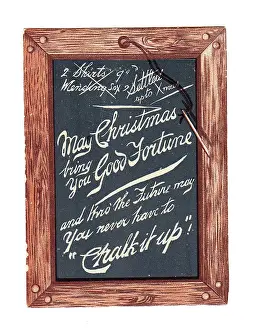 2 Shirts 9d Settled
Mending Sox 2 up to Xmas
May Christmas
bring
You Good Fortune
and thro' the Future may
You never have to
"Chalk it up"!